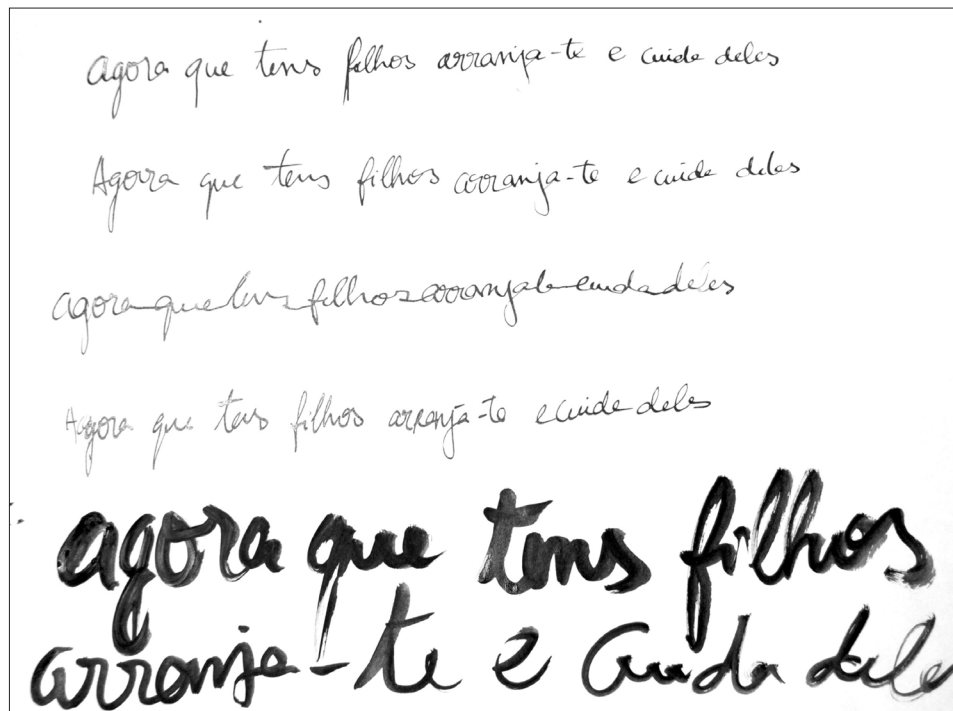 agora que tens filhos arranja-te e cuida deles
Agora que tens filhos arranja-te e cuida deles
agora que tens filhos arranja te e cuida deles
Agora que tens filhos arranja-te e cuida deles
agora que tens filhos
arranja-te e cuida deles